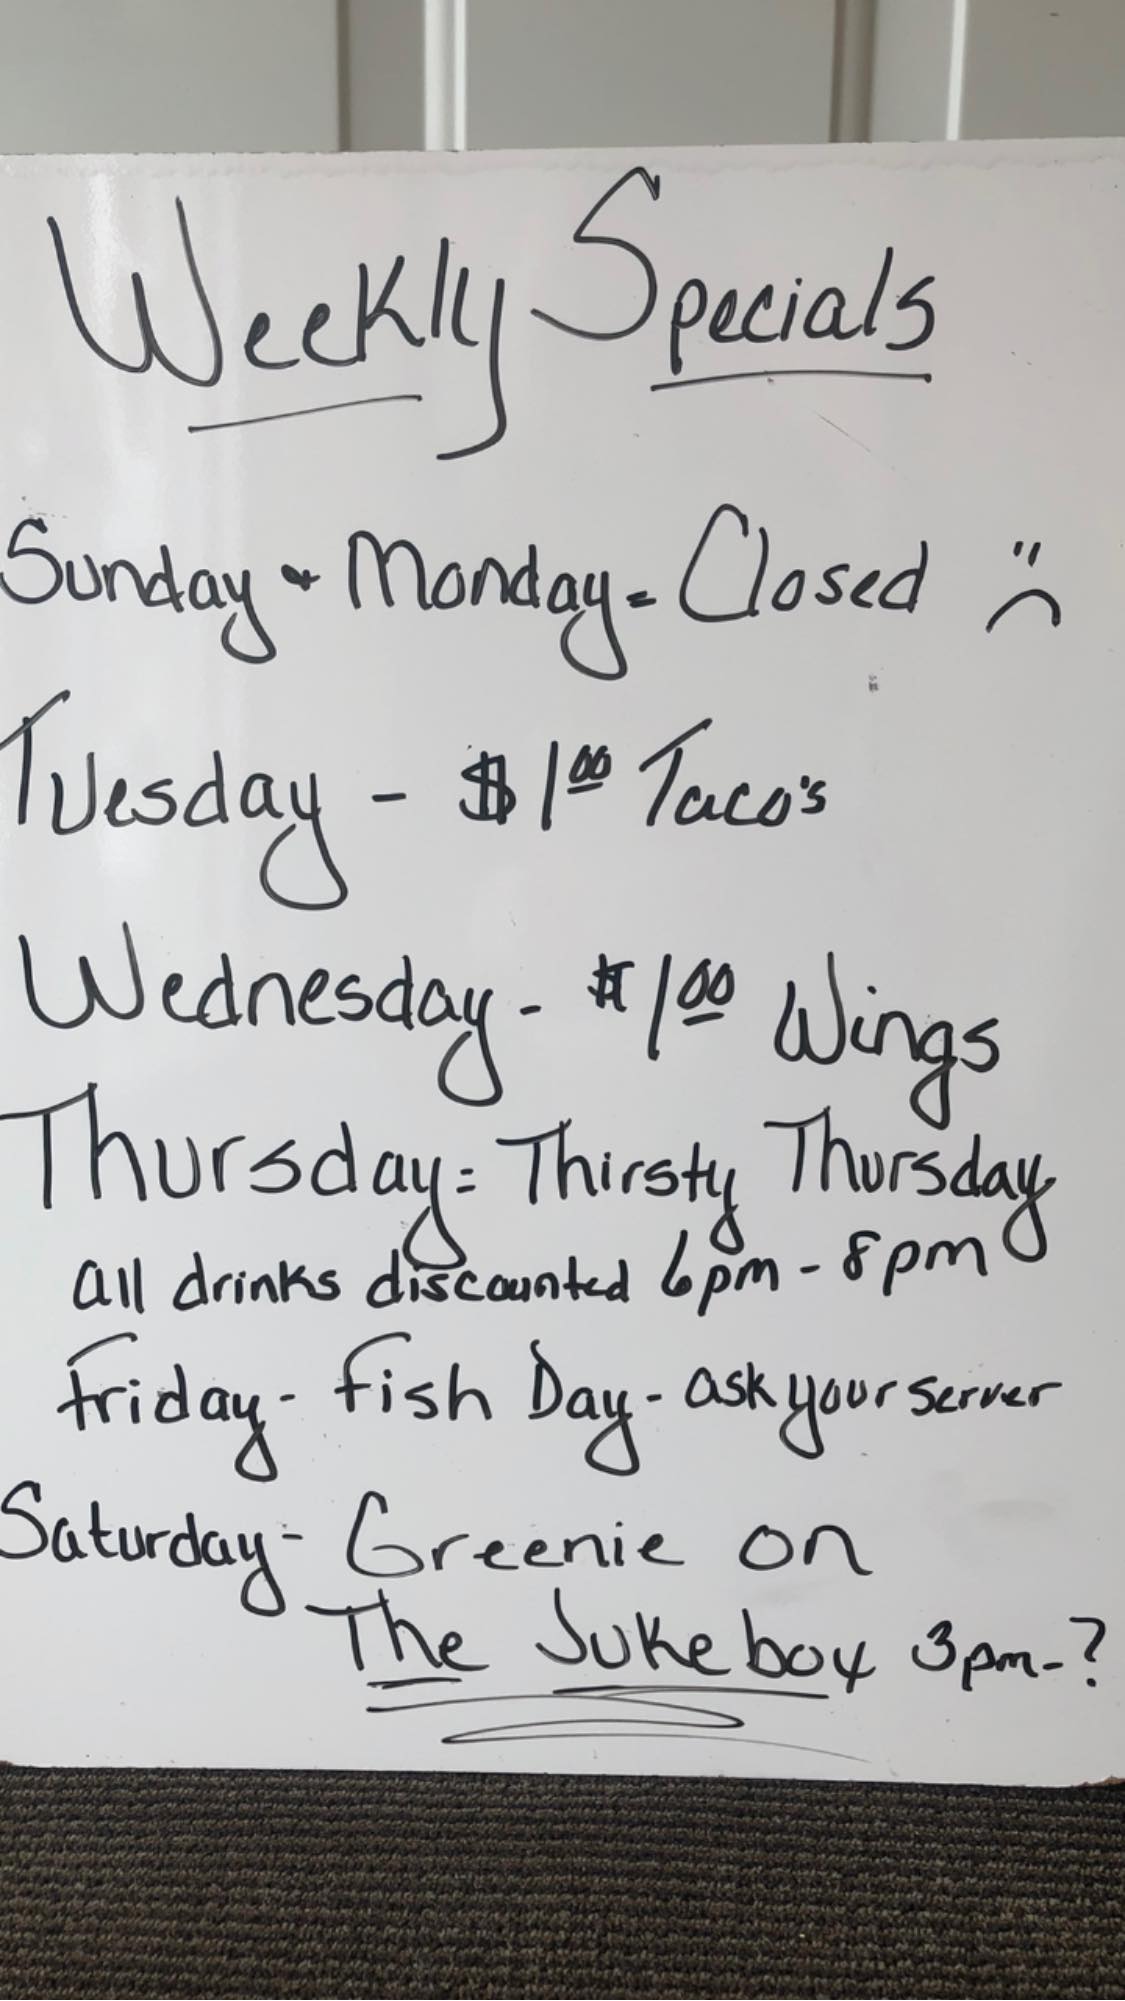 Weekly Specials
Sunday + Monday = Closed
Tuesday - $1.00 Taco's
Wednesday - $1.00 Wings
Thursday = Thirsty Thursday
all drinks discounted 6pm - 8pm
Friday - Fish Day - ask your server
Saturday - Greenie on
The Jukebox 3pm - ?